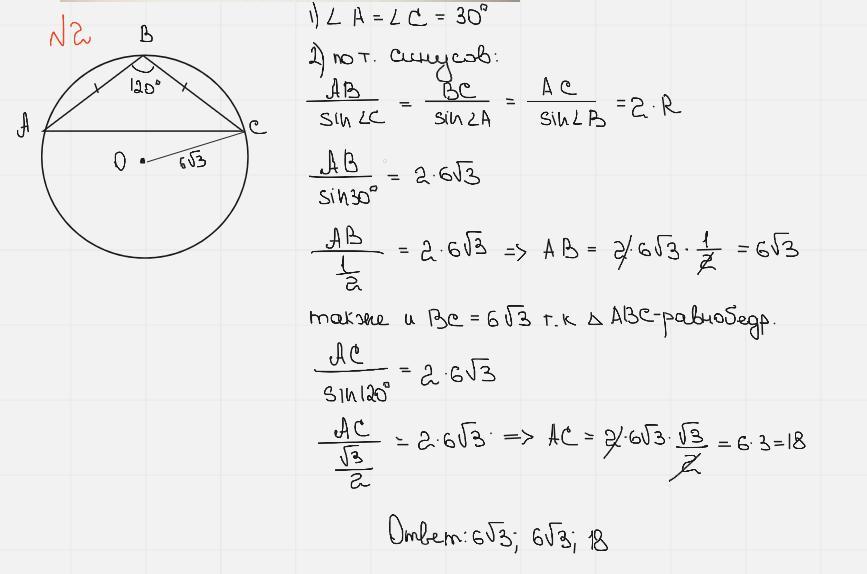 №2
B
120°
A
C
O
6√3
1) ∠ A = ∠ C = 30°
2) по т. синусов:
AB/sin∠C = BC/sin∠A = AC/sin∠B = 2·R
AB/sin30° = 2·6√3
AB/(1/2) = 2·6√3 => AB = 2·6√3·1/2 = 6√3
также и BC = 6√3 т.к △ ABC-равнобедр.
AC/sin120° = 2·6√3
AC/(√3/2) = 2·6√3 => AC = 2·6√3·√3/2 = 6·3=18
Ответ: 6√3; 6√3; 18